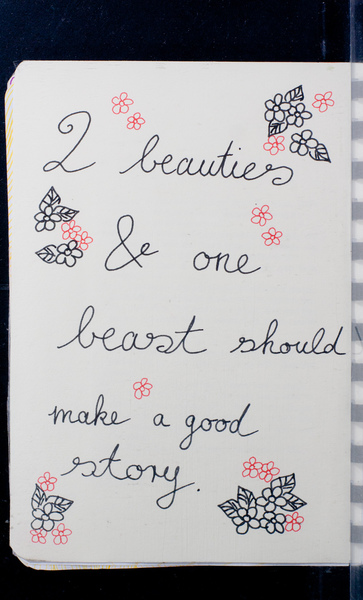 2 beauties
& one
beast should
make a good
story.